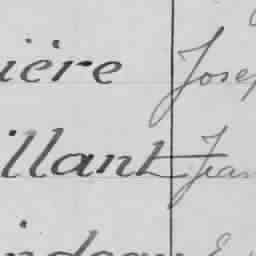 ière Josep
illant Jean